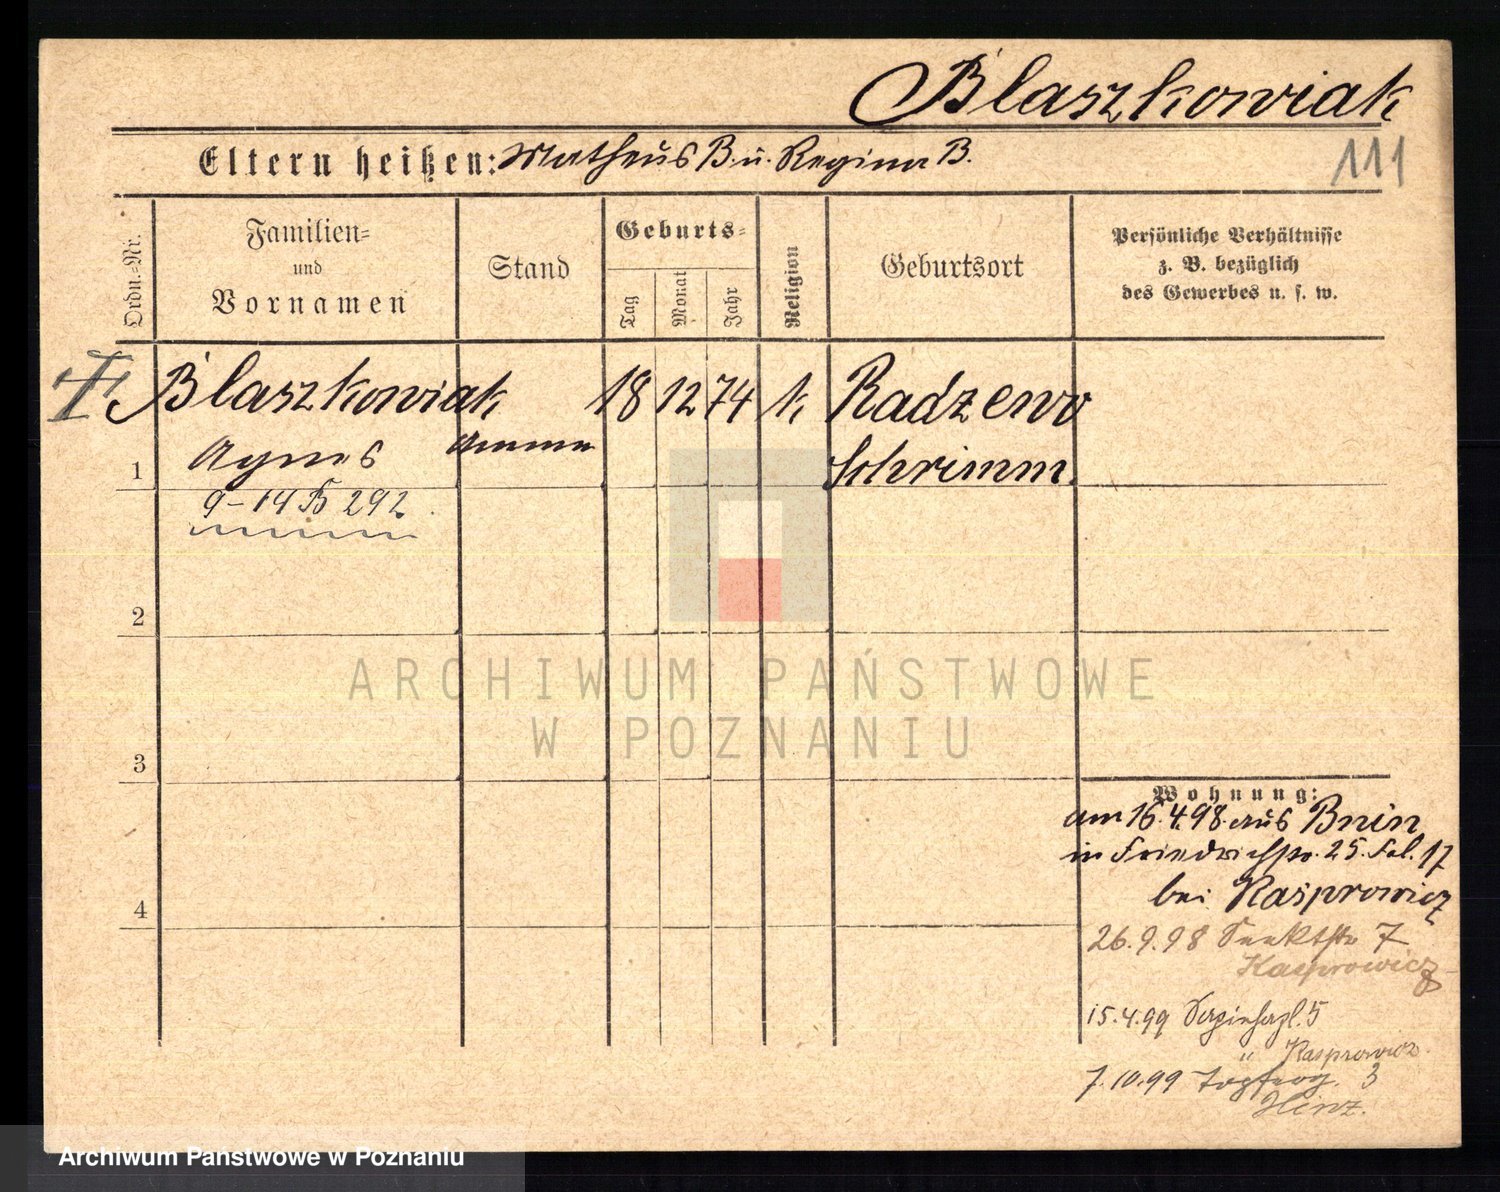 Blaszkowiak
Eltern heißen: Matheus B. u. Regina B.
111
Ordn.-Nr.
Familien-
und
Vornamen
Stand
Geburts-
Tag
Monat
Jahr
Religion
Geburtsort
Persönliche Verhältnisse
z. B. bezüglich
des Gewerbes u. s. w.
Blaszkowiak 18 12 74 k Radzewo
1 Agnes Amme Schrimm
9-14 B 292
2
ARCHIWUM PAŃSTWOWE
W POZNANIU
3
Wohnung:
am 16.4.98. aus Bnin
in Friedrichstr. 25. Fol. 17
bei Kasprowicz
4
26.9.98 7
Kasprowicz
15.4.99 5
" Kasprowicz
7.10.99 3
Hinz.
Archiwum Państwowe w Poznaniu